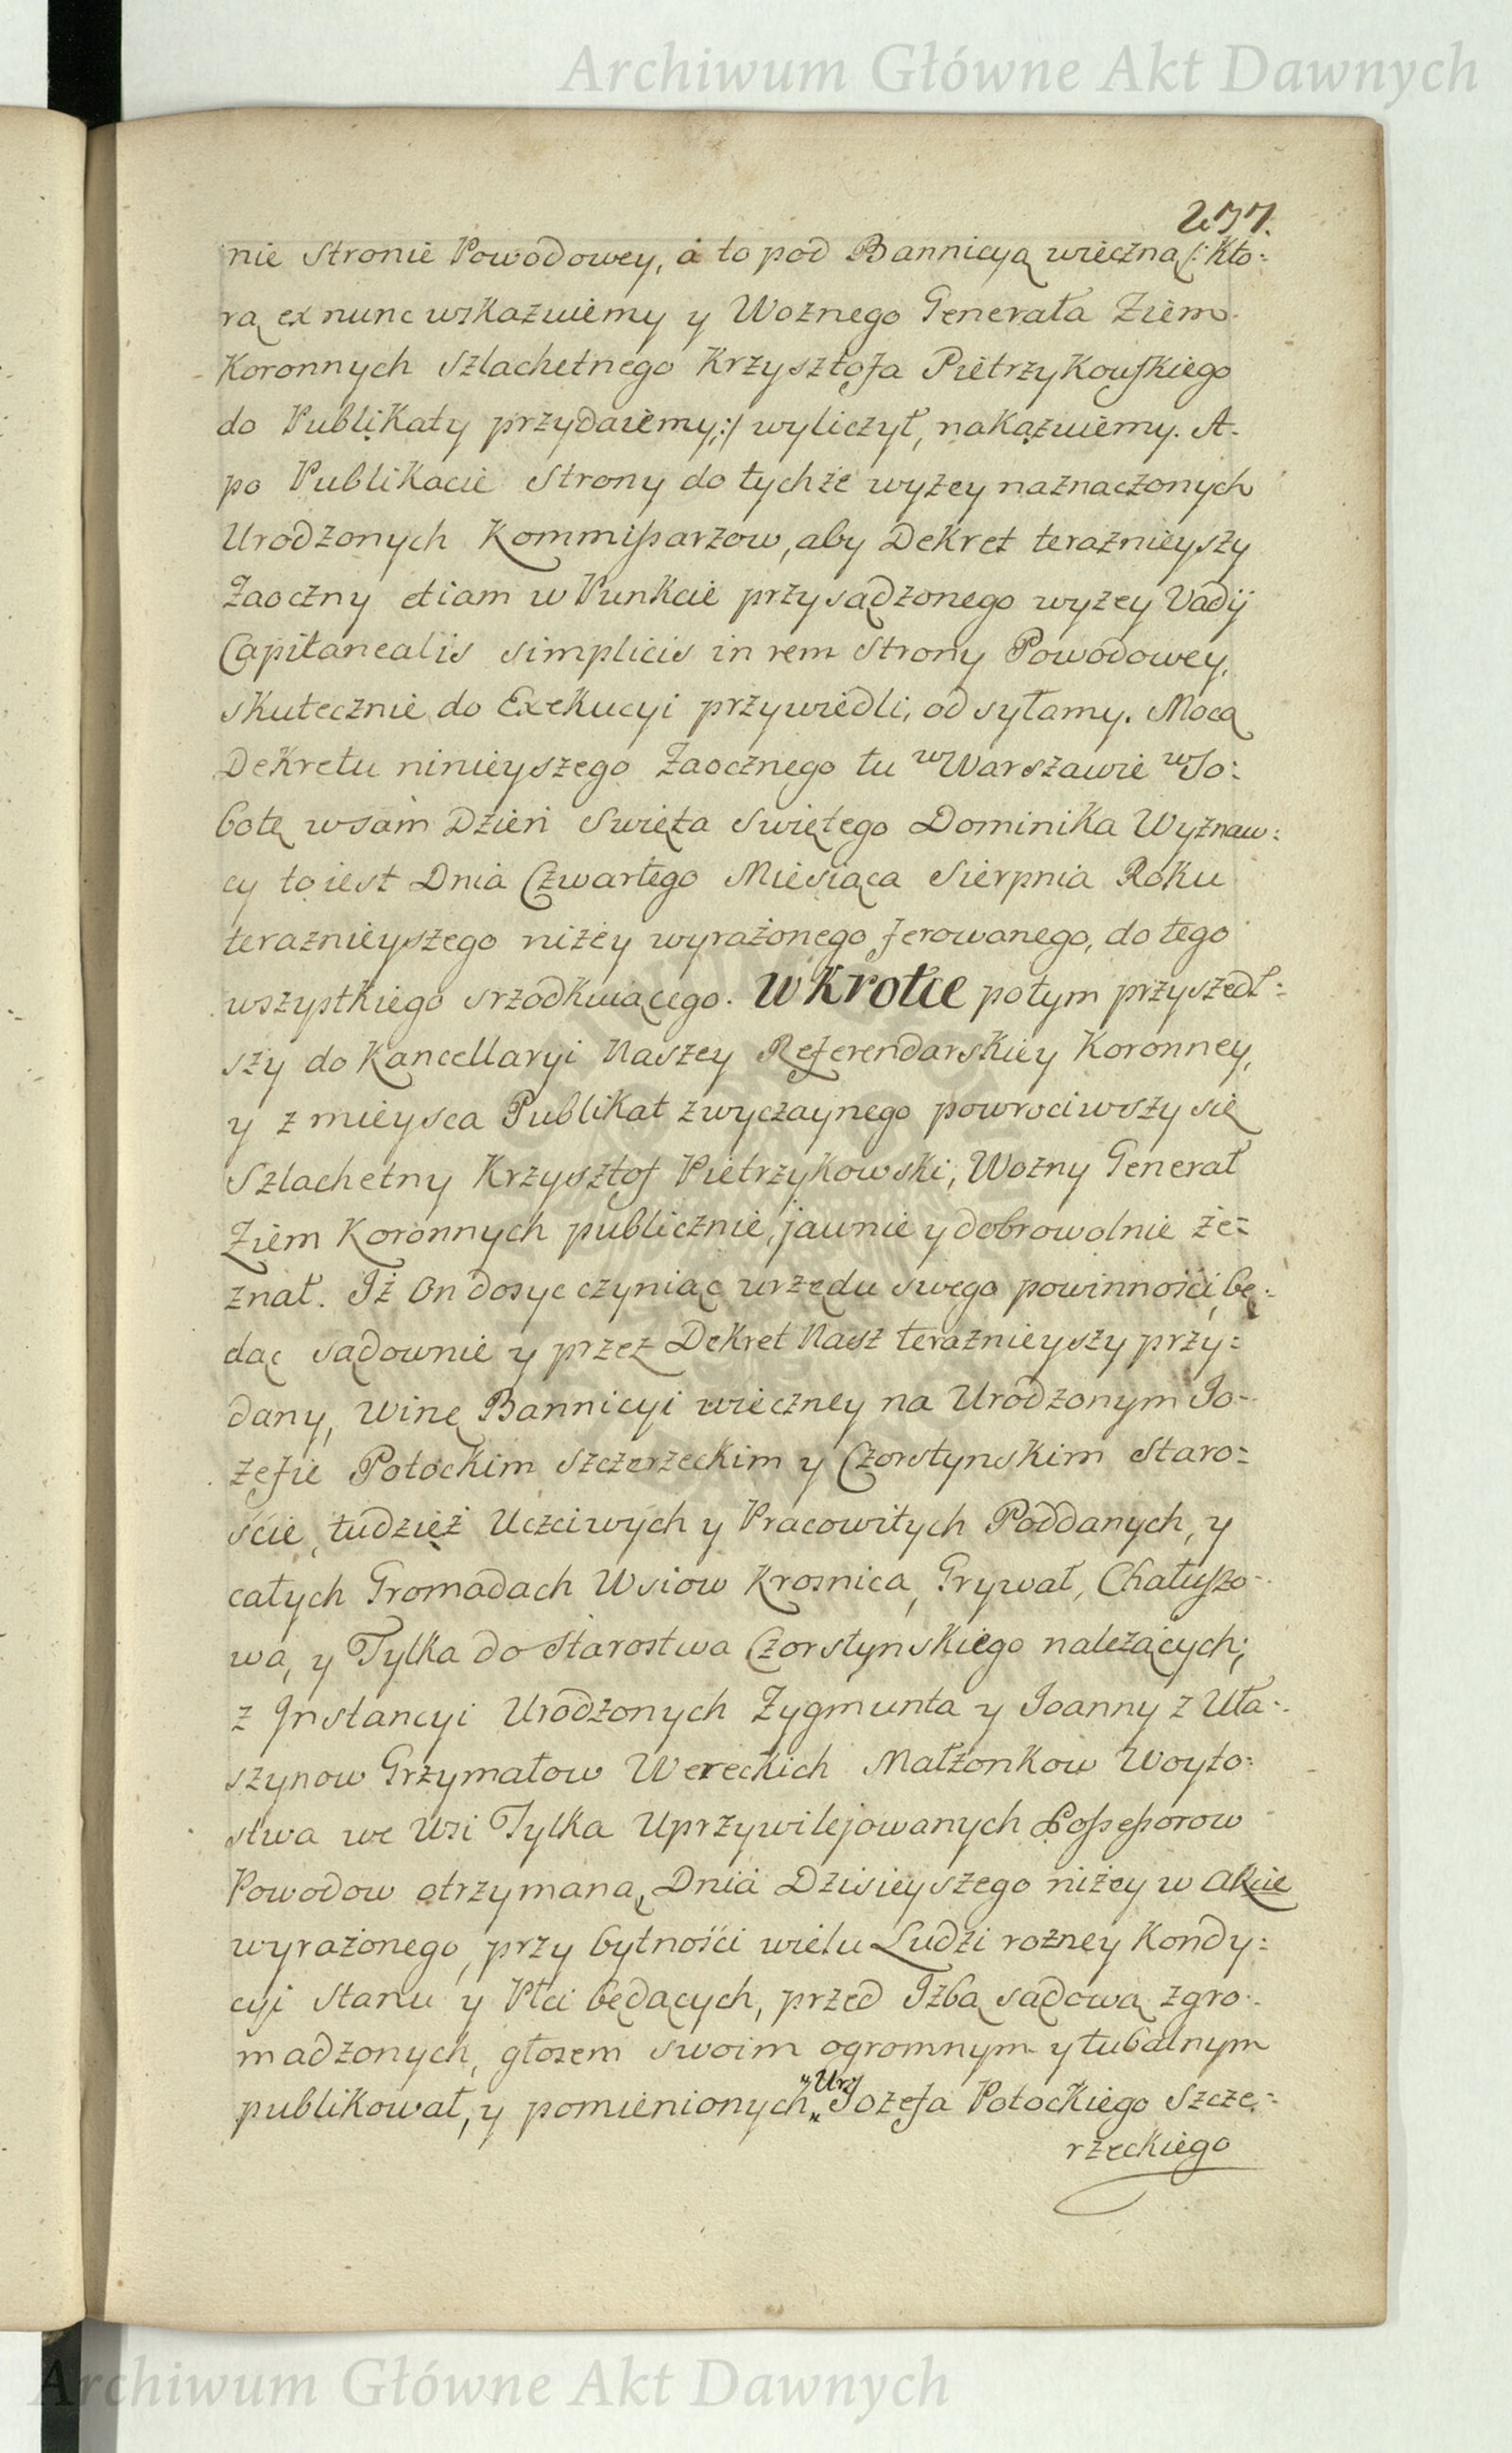 Archiwum Główne Akt Dawnych
277.
nie Stronie Powodowey, a to pod Bannicyą wieczną /: Kto:
rą ex nunc wskazuiemy y Woznego Generała Ziem
Koronnych Szlachetnego Krzysztofa Pietrzykowskiego
do Publikaty przydaiemy :/ wyliczył, nakazuiemy. A
po Publikacie Strony do tychże wyzey naznaczonych
Urodzonych Kommissarzow, aby Dekret teraznieyszy
Zaoczny etiam w Punkcie przysądzonego wyzey Vadij
Capitanealis simplicis in rem Strony Powodowey,
skutecznie do Exekucyi przywiedli, odsyłamy. Mocą
Dekretu ninieyszego Zaocznego tu w Warszawie w So:
botę w sam Dzień Swięta Swiętego Dominika Wyznaw:
cy to iest Dnia Czwartego Miesiąca Sierpnia Roku
teraznieyszego niżey wyrażonego ferowanego, do tego
wszystkiego srzodkuiącego. W Krotce potym przyszedł:
szy do Kancellaryi Naszey Referendarskiey Koronney,
y z mieysca Publikat zwyczaynego powrociwszy się
Szlachetny Krzysztof Pietrzykowski, Wozny Generał
Ziem Koronnych publicznie, jawnie y dobrowolnie ze:
znał. Iż On dosyc czyniąc urzędu swego powinności, bę:
dąc sądownie y przez Dekret Nasz teraznieyszy przy:
dany, winę Bannicyi wieczney na Urodzonym Jo:
zefie Potockim Szczerzeckim y Czorstynskim Staro:
ście, tudzież Uczciwych y Pracowitych Poddanych, y
całych Gromadach Wsiow Krosnica, Grywał, Chałuszo:
wa, y Tylka do Starostwa Czorstynskiego należących;
z Jnstancyi Urodzonych Zygmunta y Joanny z Uła:
szynow Grzymałow Wereckich Małżonkow Woyto:
stwa we Wsi Tylka Uprzywilejowanych Possessorow
Powodow otrzymaną, Dnia Dzisieyszego niżey w Akcie
wyrażonego, przy bytności wielu Ludzi rozney Kondy:
cyi Stanu y Płci będących, przed Izbą sądową zgro:
madzonych, głosem swoim ogromnym y tubalnym
publikował, y pomienionych Urz Jozefa Potockiego Szcze:
rzeckiego
Archiwum Główne Akt Dawnych